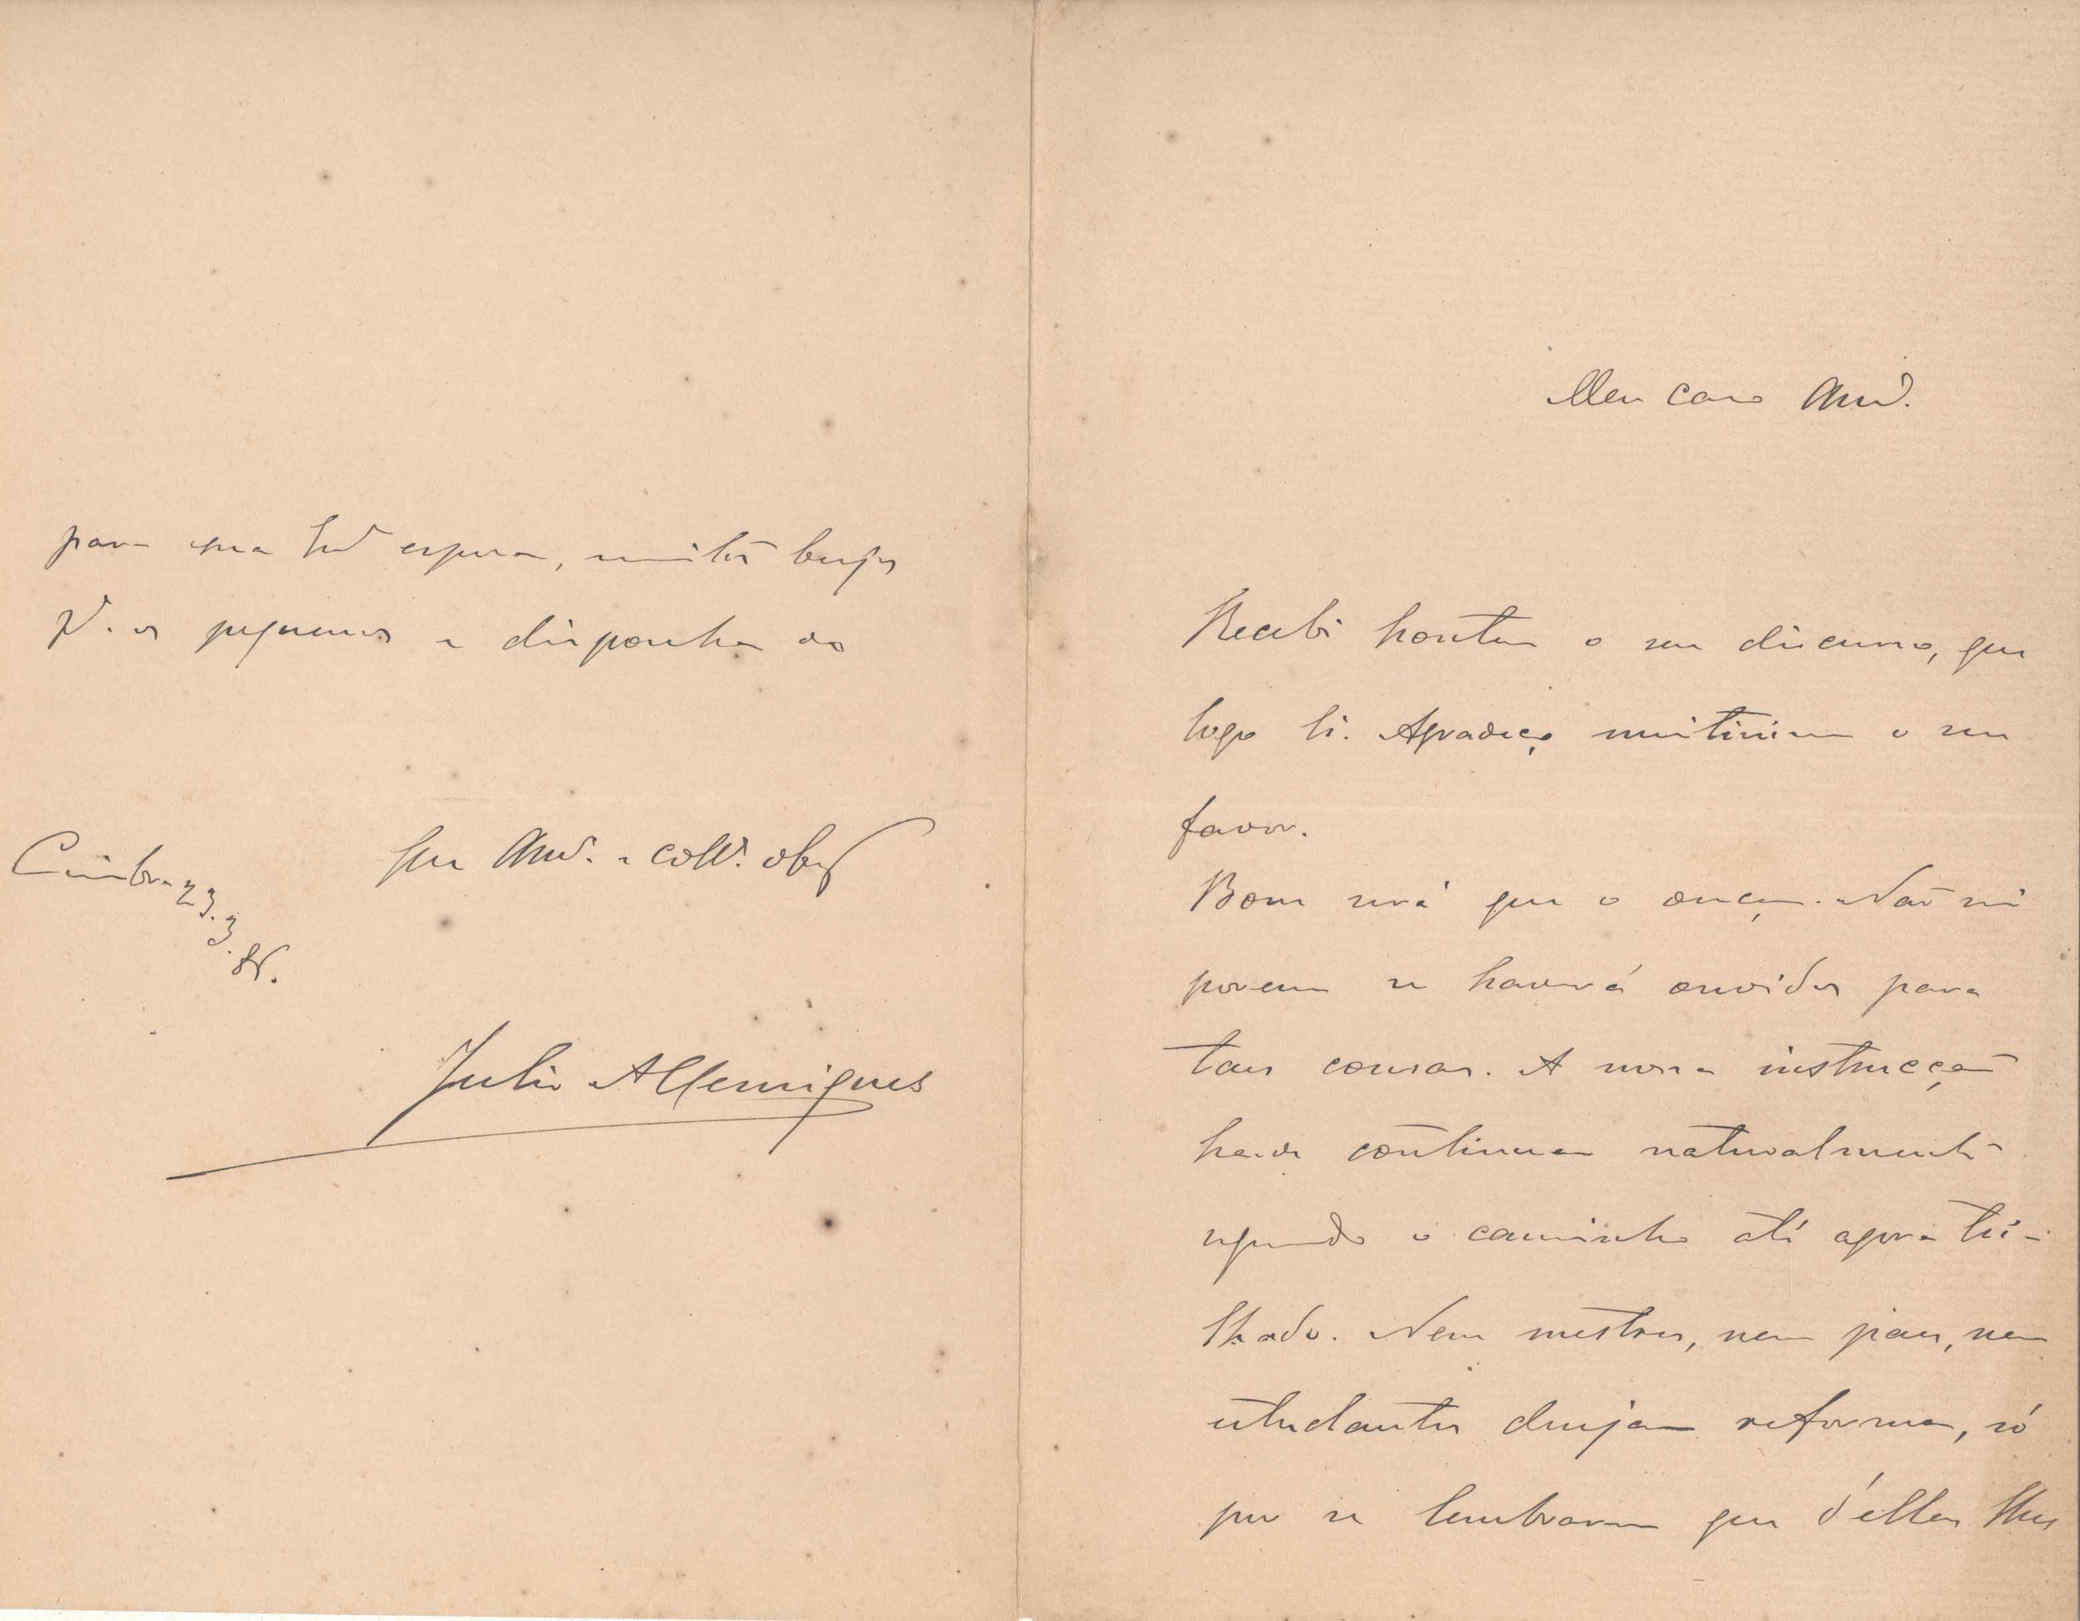 Meu caro Am.º
Recebi hontem o seu discurso, que
logo li. Agradeço muitissimo o seu
favor.
Bom será que o ouçam. Não sei
porem se haverá ouvidos para
taes cousas. A nossa instrucção
ha de continuar naturalmente
seguindo o caminho até agora tri-
lhado. Nem mestres, nem paes, nem
estudantes desejam reforma, só
por se lembrarem que d'ella lhes
para sua esposa, muitos beijos
p.ª os pequenos e disponha do
Seu Am.º e coll.ª obg.
Coimbra 23.3.
Julio A Henriques